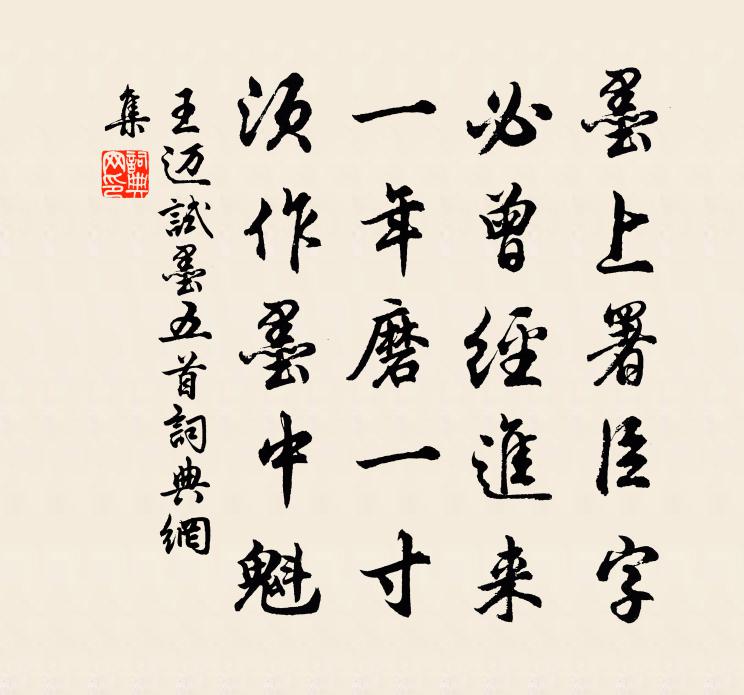 墨上署臣字
必曾經進来
一年磨一寸
須作墨中魁
王迈試墨五首詞典網
集
詞典
网印